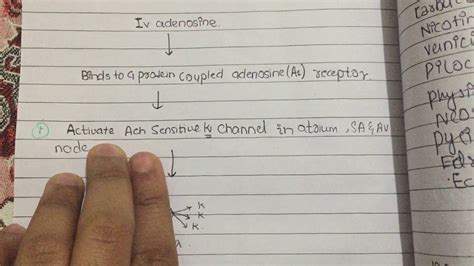 Iv adenosine.
Binds to G protein coupled adenosine (A1) receptor
① Activate Ach Sensitive K channel in atrium, SA & AV
node
K
K
K.
Nicoti
PILOC
physi
Neo